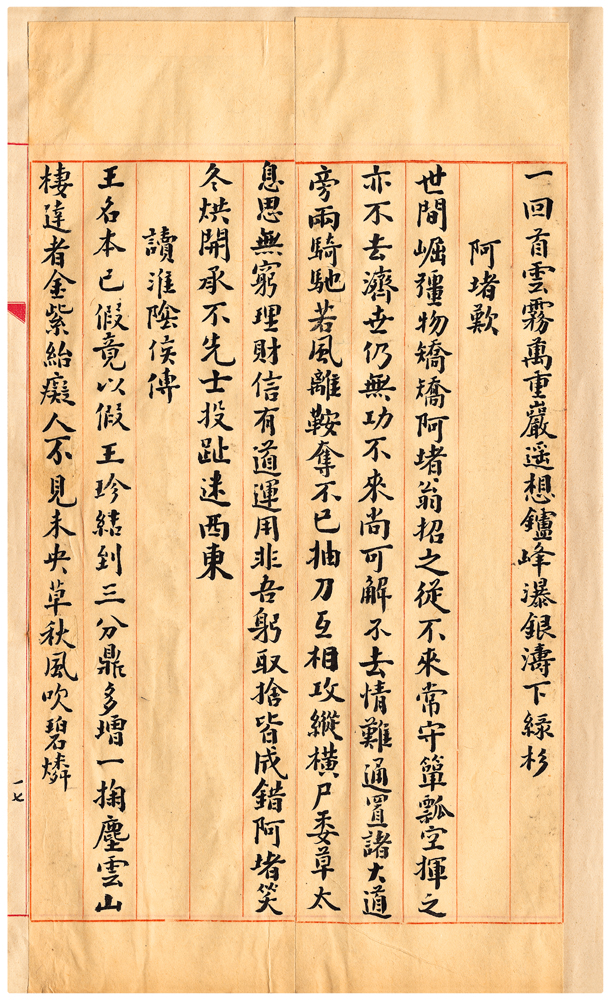 一回首雲霧萬重巖遥想鑪峰瀑銀濤下緑杉
阿堵歎
世間崛彊物矯矯阿堵翁招之從不來常守簞瓢空揮之
亦不去濟世仍無功不來尚可解不去情難通置諸大道
旁兩騎馳若風離鞍奪不已抽刀互相攻縱橫尸委草太
息思無窮理財信有道運用非吾躬取捨皆成錯阿堵笑
冬烘開承不先士投趾迷西東
讀淮陰侯傳
王名本已假竟以假王珍結到三分鼎多增一掬塵雲山
棲達者金紫紿癡人不見未央草秋風吹碧燐
一七